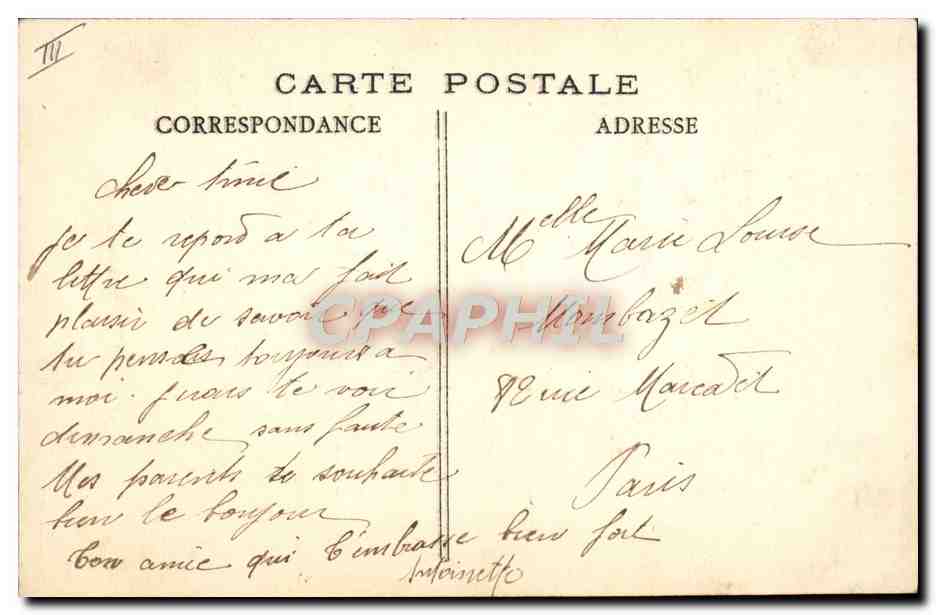 III
CARTE POSTALE
CORRESPONDANCE
chere
je te repond a ta
lettre qui ma fait
plaisir de savoir que
tu penses toujours a
moi. j'irais te voir
dimanche sans faute
Mes parents te souhaite
bien le bonjour
Ton amie qui t'embrasse bien fort
Antoinette
ADRESSE
Melle Marie Louise
Mombazet
rue Marcadet
Paris
CPAPHIL